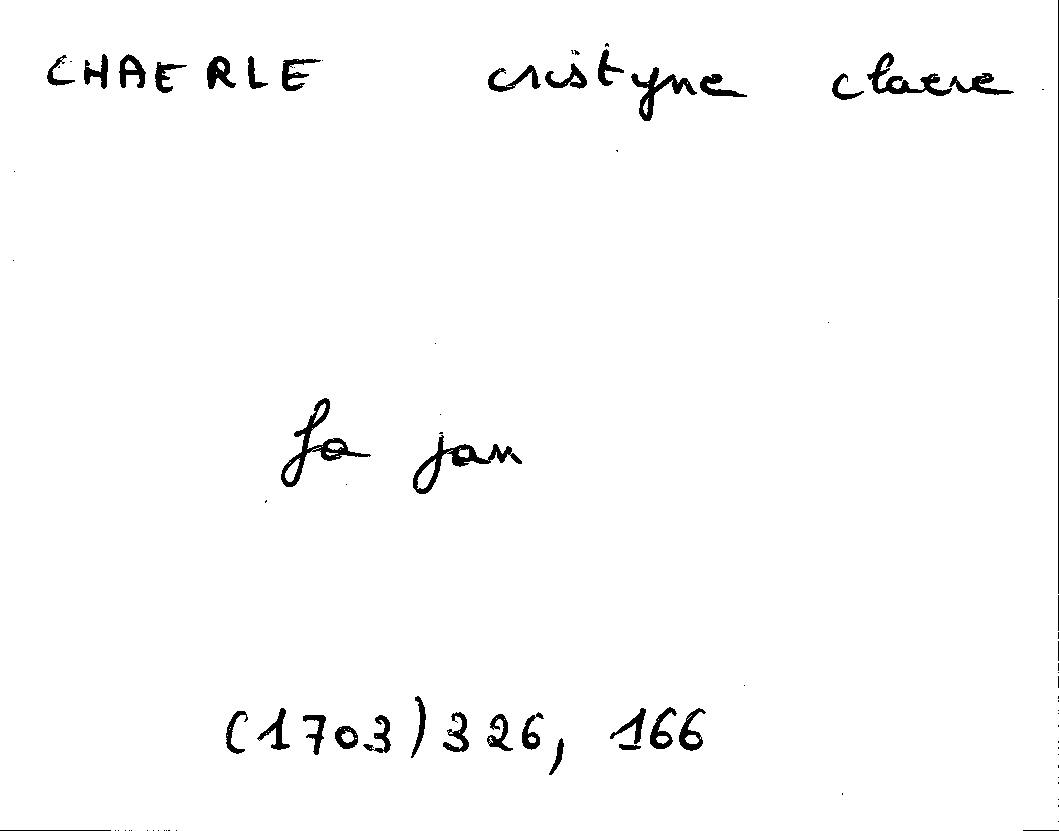 CHAERLE cristyne claere
fa jan
(1703) 326, 166